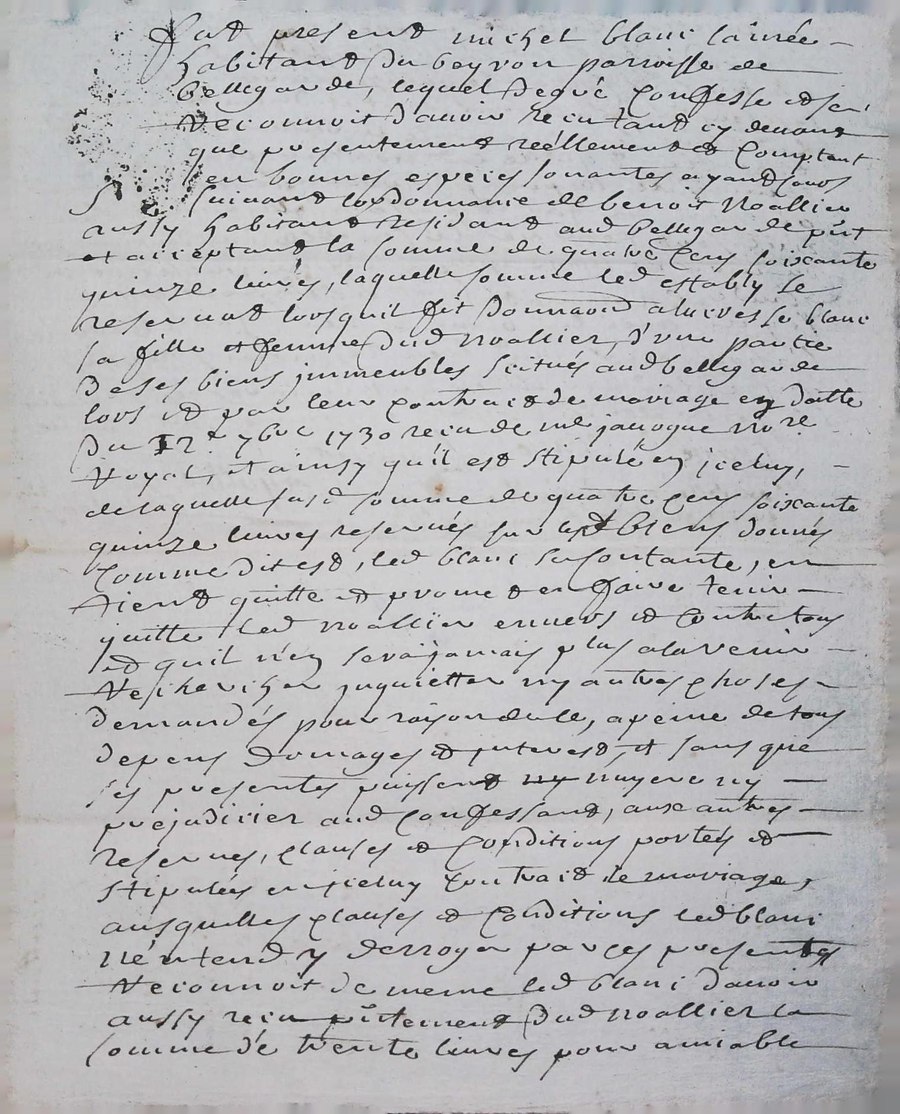 Fut present michel blanc lainée
habitant du beyron parroisse de
bellegarde, lequel de gré confesse et
reconnoit davoir recu tant cy devant
que presentement réellement et comptant
en bonnes especes sonantes ayant cours
suivant lordonnance de benoit Noallier
aussy habitant residant aud bellegarde pñt
et acceptant la somme de quatre cens soixante
quinze livres, laquelle somme led estably se
reservat lors quil fit donnaond a lucresse blanc
sa fille et femme dud Noallier, d'une partie
de ses biens immeubles scitués aud bellegarde
lors et par leur contract de mariage en datte
du 12e 7bre 1730 recu de me jacogue no.re
Royal, et ainsy qu'il est stipulé en jceluy,
de laquelle susd somme de quatre cens soixante
quinze livres reservés sur lesd biens donnés
comme dit est, led blanc se contante, en
tient quitte et promet en faire tenir
quitte led Noallier envers et contre tous
et quil n'en sera jamais plus a lavenir
rechercher jnquietter ny autres choses
demandés pour raison dicelle, a peine de tous
depens domages et jnterest, et sans que
ces presentes puissent ny nuyre ny
prejudicier aud confessant, aux autres
reserves, clauses et conditions portés et
stipulés en jceluy contract de mariage,
ausquelles clauses et conditions led blanc
n'entend y derroger par ces presentes
Reconnoit de meme led blanc davoir
aussy recu pñtement dud Noallier la
somme de trente livres pour amiable